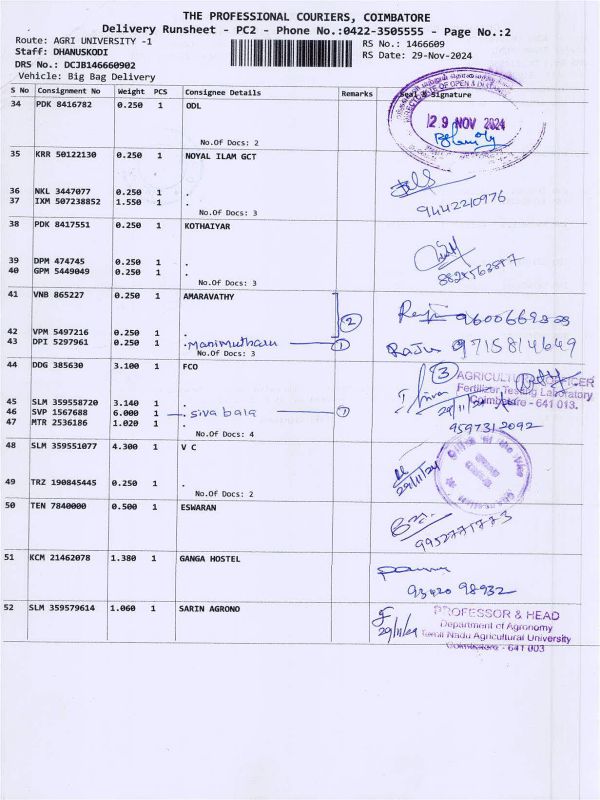 THE PROFESSIONAL COURIERS, COIMBATORE
Delivery Runsheet - PC2 - Phone No.:0422-3505555 - Page No.:2
Route: AGRI UNIVERSITY -1
RS No.: 1466609
Staff: DHANUSKODI
RS Date: 29-Nov-2024
DRS No.: DCJB146660902
Vehicle: Big Bag Delivery
S No Consignment No Weight PCS Consignee Details Remarks Seal & Signature
34 PDK 8416782 0.250 1 ODL
29 NOV 2024
No.Of Docs: 2
35 KRR 50122130 0.250 1 NOYAL ILAM GCT
36 NKL 3447077 0.250 1 .
37 IXM 507238852 1.550 1 .
9442210976
No.Of Docs: 3
38 PDK 8417551 0.250 1 KOTHAIYAR
39 DPM 474745 0.250 1 .
40 GPM 5449049 0.250 1 .
No.Of Docs: 3
41 VNB 865227 0.250 1 AMARAVATHY
2
42 VPM 5497216 0.250 1 .
43 DPI 5297961 0.250 1 .Manimutharu 1 Raju 9715814649
No.Of Docs: 3
44 DDG 385630 3.100 1 FCO
3
AGRICULTURAL OFFICER
Fertilizer Testing Laboratory
Coimbatore - 641 013.
45 SLM 359558720 3.140 1 .
46 SVP 1567688 6.000 1 . siva bala 1
29/11/24
47 MTR 2536186 1.020 1 .
9597312092
No.Of Docs: 4
48 SLM 359551077 4.300 1 V C
29/11/24
49 TRZ 190845445 0.250 1 .
No.Of Docs: 2
50 TEN 7840000 0.500 1 ESWARAN
9952771773
51 KCM 21462078 1.380 1 GANGA HOSTEL
93420 98932
52 SLM 359579614 1.060 1 SARIN AGRONO
29/11/24
PROFESSOR & HEAD
Department of Agronomy
Tamil Nadu Agricultural University
Coimbatore - 641 003